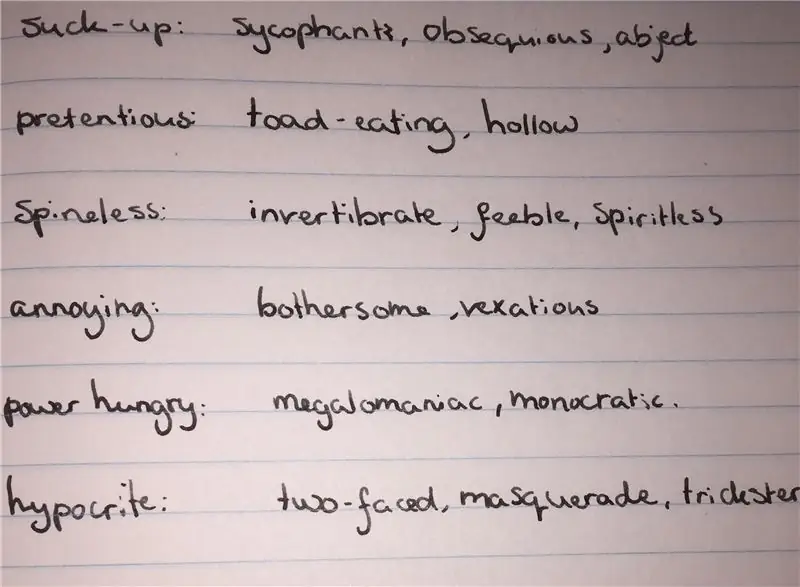 suck-up: sycophants, obsequious, abject
pretentious: toad-eating, hollow
Spineless: invertibrate, feeble, Spiritless
annoying: bothersome, vexatious
power hungry: megalomaniac, monocratic.
hypocrite: two-faced, masquerade, trickster